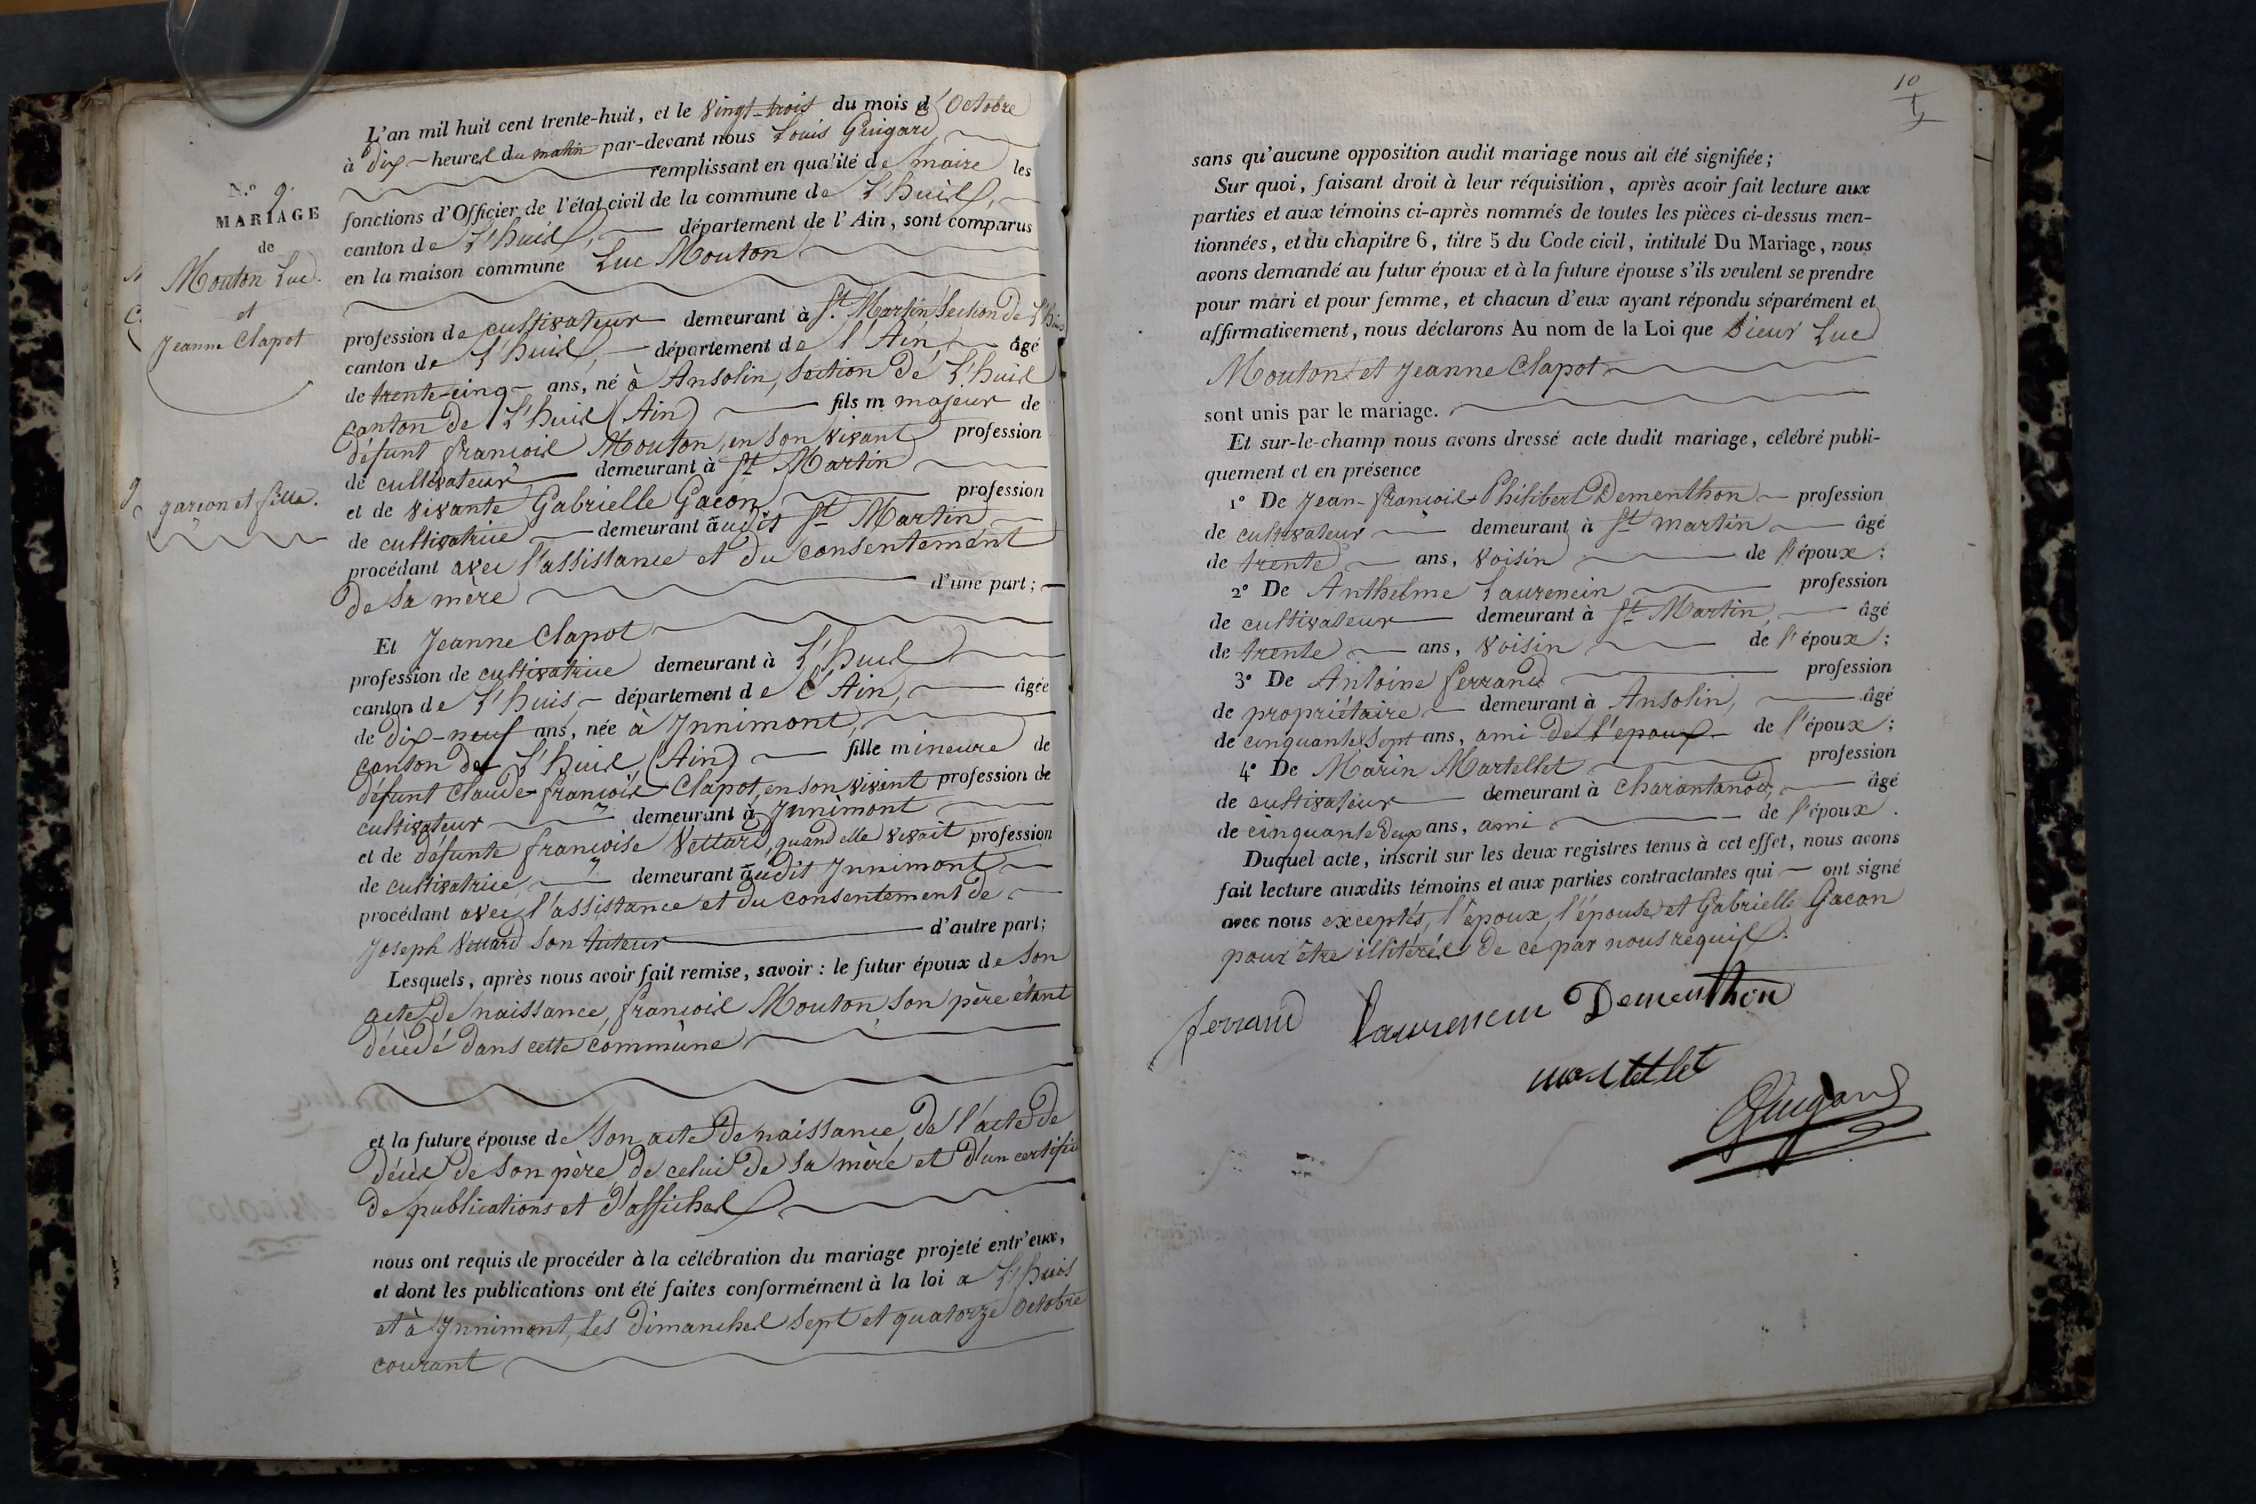 N.º 9.
MARIAGE
de
Mouton Luc.
et
Jeanne Clapot
garcon et fille.
L'an mil huit cent trente-huit, et le Vingt-trois du mois d'Octobre
à dix heures du matin par-devant nous Louis Guigard
remplissant en qualité de maire les
fonctions d'Officier de l'état civil de la commune de L'huis,
canton de L'huis, département de l'Ain, sont comparus
en la maison commune Luc Mouton
profession de cultivateur demeurant à St. Martin Section de L'huis
canton de L'huis, département de l'Ain, âgé
de trente-cinq ans, né à Ansolin, section de L'huis
canton de L'huis (Ain) fils m majeur de
défunt françois Mouton, en son vivant profession
de cultivateur demeurant à St Martin
et de vivante Gabrielle Gacon, profession
de cultivatrice demeurant audit St Martin
procédant avec l'assistance et du consentement
de sa mère d'une part;
Et Jeanne Clapot
profession de cultivatrice demeurant à L'huis
canton de L'huis, département de l'Ain, âgée
de dix-neuf ans, née à Innimont,
canton de L'huis (Ain) fille mineure de
défunt Claude-françois Clapot, en son vivant profession de
cultivateur demeurant à Innimont
et de défunte françoise Vettard, quand elle vivait profession
de cultivatrice, demeurant audit Innimont
procédant avec l'assistance et du consentement de
Joseph Vettard son tuteur d'autre part;
Lesquels, après nous avoir fait remise, savoir : le futur époux de son
acte de naissance, françois Mouton, son père étant
décédé dans cette commune
et la future épouse de son acte de naissance, de l'acte de
décès de son père, de celui de sa mère et d'un certificat
de publications et d'affiches
nous ont requis de procéder à la célébration du mariage projeté entr'eux,
et dont les publications ont été faites conformément à la loi a L'huis
et à Innimont, les dimanches sept et quatorze Octobre
courant
10
sans qu'aucune opposition audit mariage nous ait été signifiée;
Sur quoi, faisant droit à leur réquisition, après avoir fait lecture aux
parties et aux témoins ci-après nommés de toutes les pièces ci-dessus men-
tionnées, et du chapitre 6, titre 5 du Code civil, intitulé Du Mariage, nous
avons demandé au futur époux et à la future épouse s'ils veulent se prendre
pour mari et pour femme, et chacun d'eux ayant répondu séparément et
affirmativement, nous déclarons Au nom de la Loi que Sieur Luc
Mouton et Jeanne Clapot
sont unis par le mariage.
Et sur-le-champ nous avons dressé acte dudit mariage, célébré publi-
quement et en présence
1º De Jean-françois Philibert Dementhon profession
de cultivateur demeurant à St martin âgé
de trente ans, voisin de l'époux;
2º De Anthelme Laurencin profession
de cultivateur demeurant à St Martin, âgé
de trente ans, voisin de l'époux;
3º De Antoine ferrand profession
de propriétaire demeurant à Ansolin, âgé
de cinquante sept ans, ami de l'epoux de l'époux;
4º De Marin Martellet profession
de cultivateur demeurant à Charantanod, âgé
de cinquante deux ans, ami de l'époux.
Duquel acte, inscrit sur les deux registres tenus à cet effet, nous avons
fait lecture auxdits témoins et aux parties contractantes qui ont signé
avec nous exceptés, l'époux, l'épouse et Gabrielle Gacon
pour être illitérés de ce par nous requis.
ferrand Laurencin Dementhon
martellet
Guigard